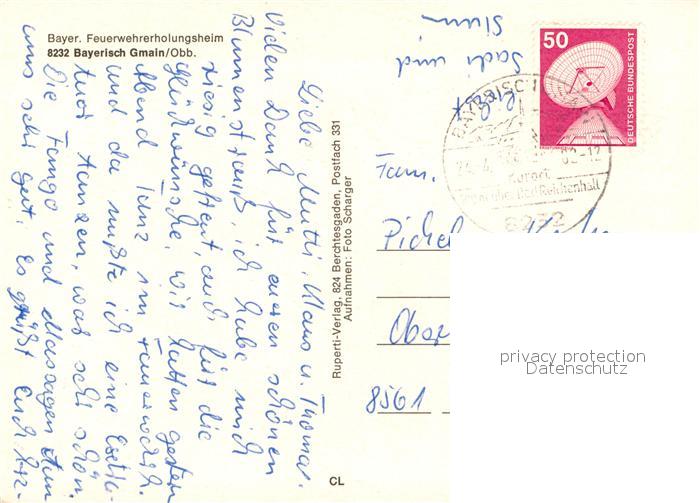 Bayer. Feuerwehrerholungsheim
8232 Bayerisch Gmain/Obb.
Liebe Mutti, Klaus u. Thomas.
Vielen Dank für euren schönen
Blumenstrauß, ich habe mich
riesig gefreut, auch für die
Glückwünsche, wir hatten gestern
Abend Tanz im
und da mußte ich eine
tanzen, war sehr schön.
Die Fango und Massagen tun
uns sehr gut. Es grüßt Euch
Sadi und
Ruperti-Verlag, 824 Berchtesgaden, Postfach 331
Aufnahmen: Foto Scharger
CL
50
DEUTSCHE BUNDESPOST
BAYERISCH
-12
Kurort
Bad Reichenhall
8232
Fam.
Pichel
Ober
8561
privacy protection
Datenschutz